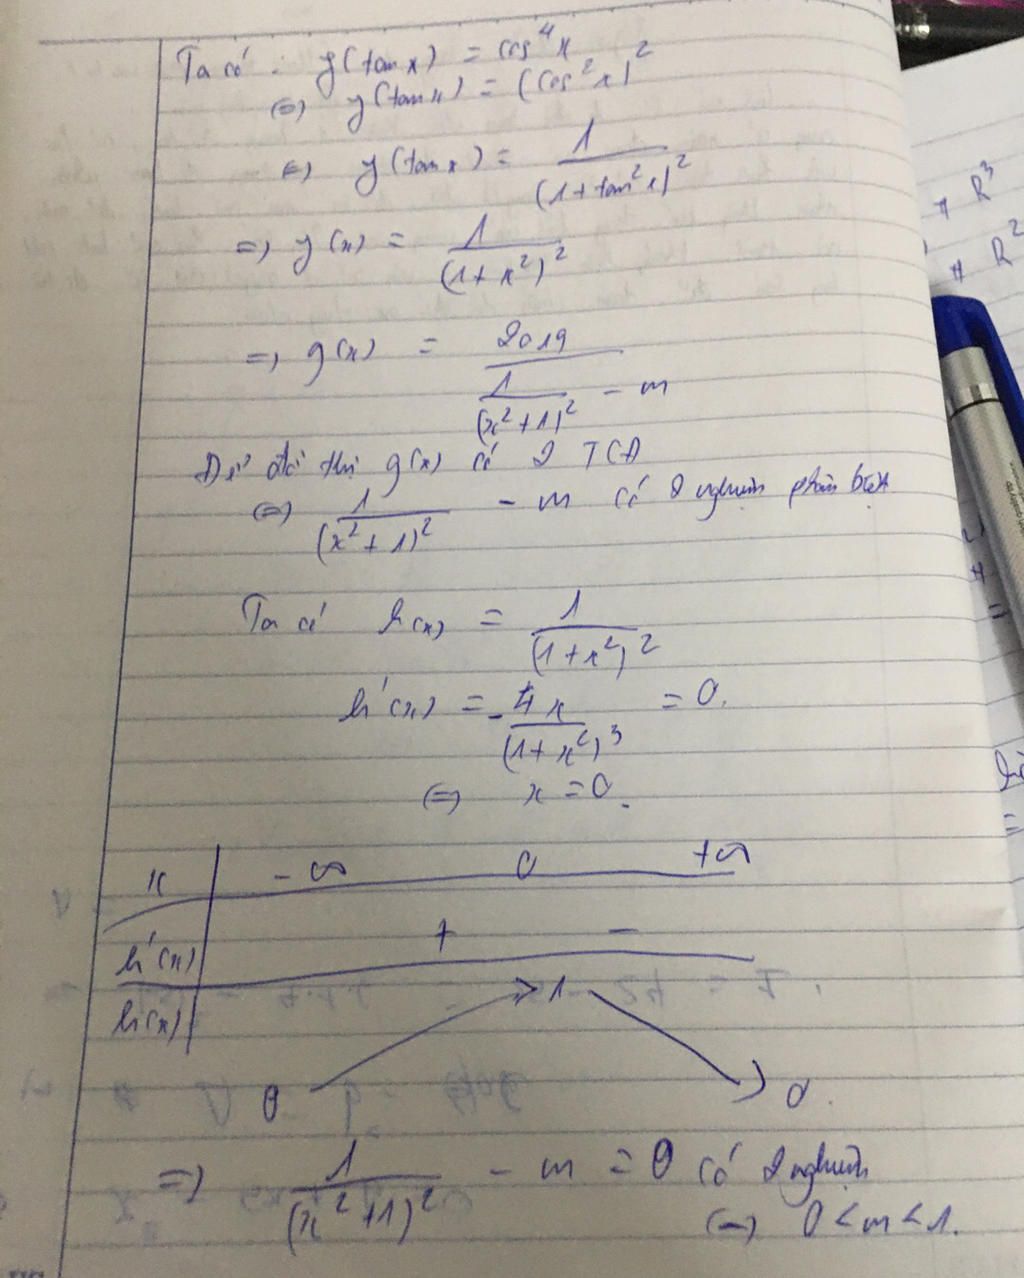 Ta có: y(tan x) = cos⁴x
⇔ y(tan x) = (cos²x)²
⇔ y(tan x) = 1/(1+tan²x)²
⇒ y(x) = 1/(1+x²)²
⇒ g(x) = 2019/(1/(x²+1)² - m)
Để đồ thị g(x) có 2 TCĐ
⇔ 1/(x²+1)² - m có 2 nghiệm phân biệt
Ta có h(x) = 1/(1+x²)²
h'(x) = -4x/(1+x²)³ = 0.
⇔ x = 0.
x -∞ 0 +∞
h'(x) + -
h(x) 1
0 0
⇒ 1/(x²+1)² - m = 0 có 2 nghiệm
⇔ 0 < m < 1.
* R³
* R²